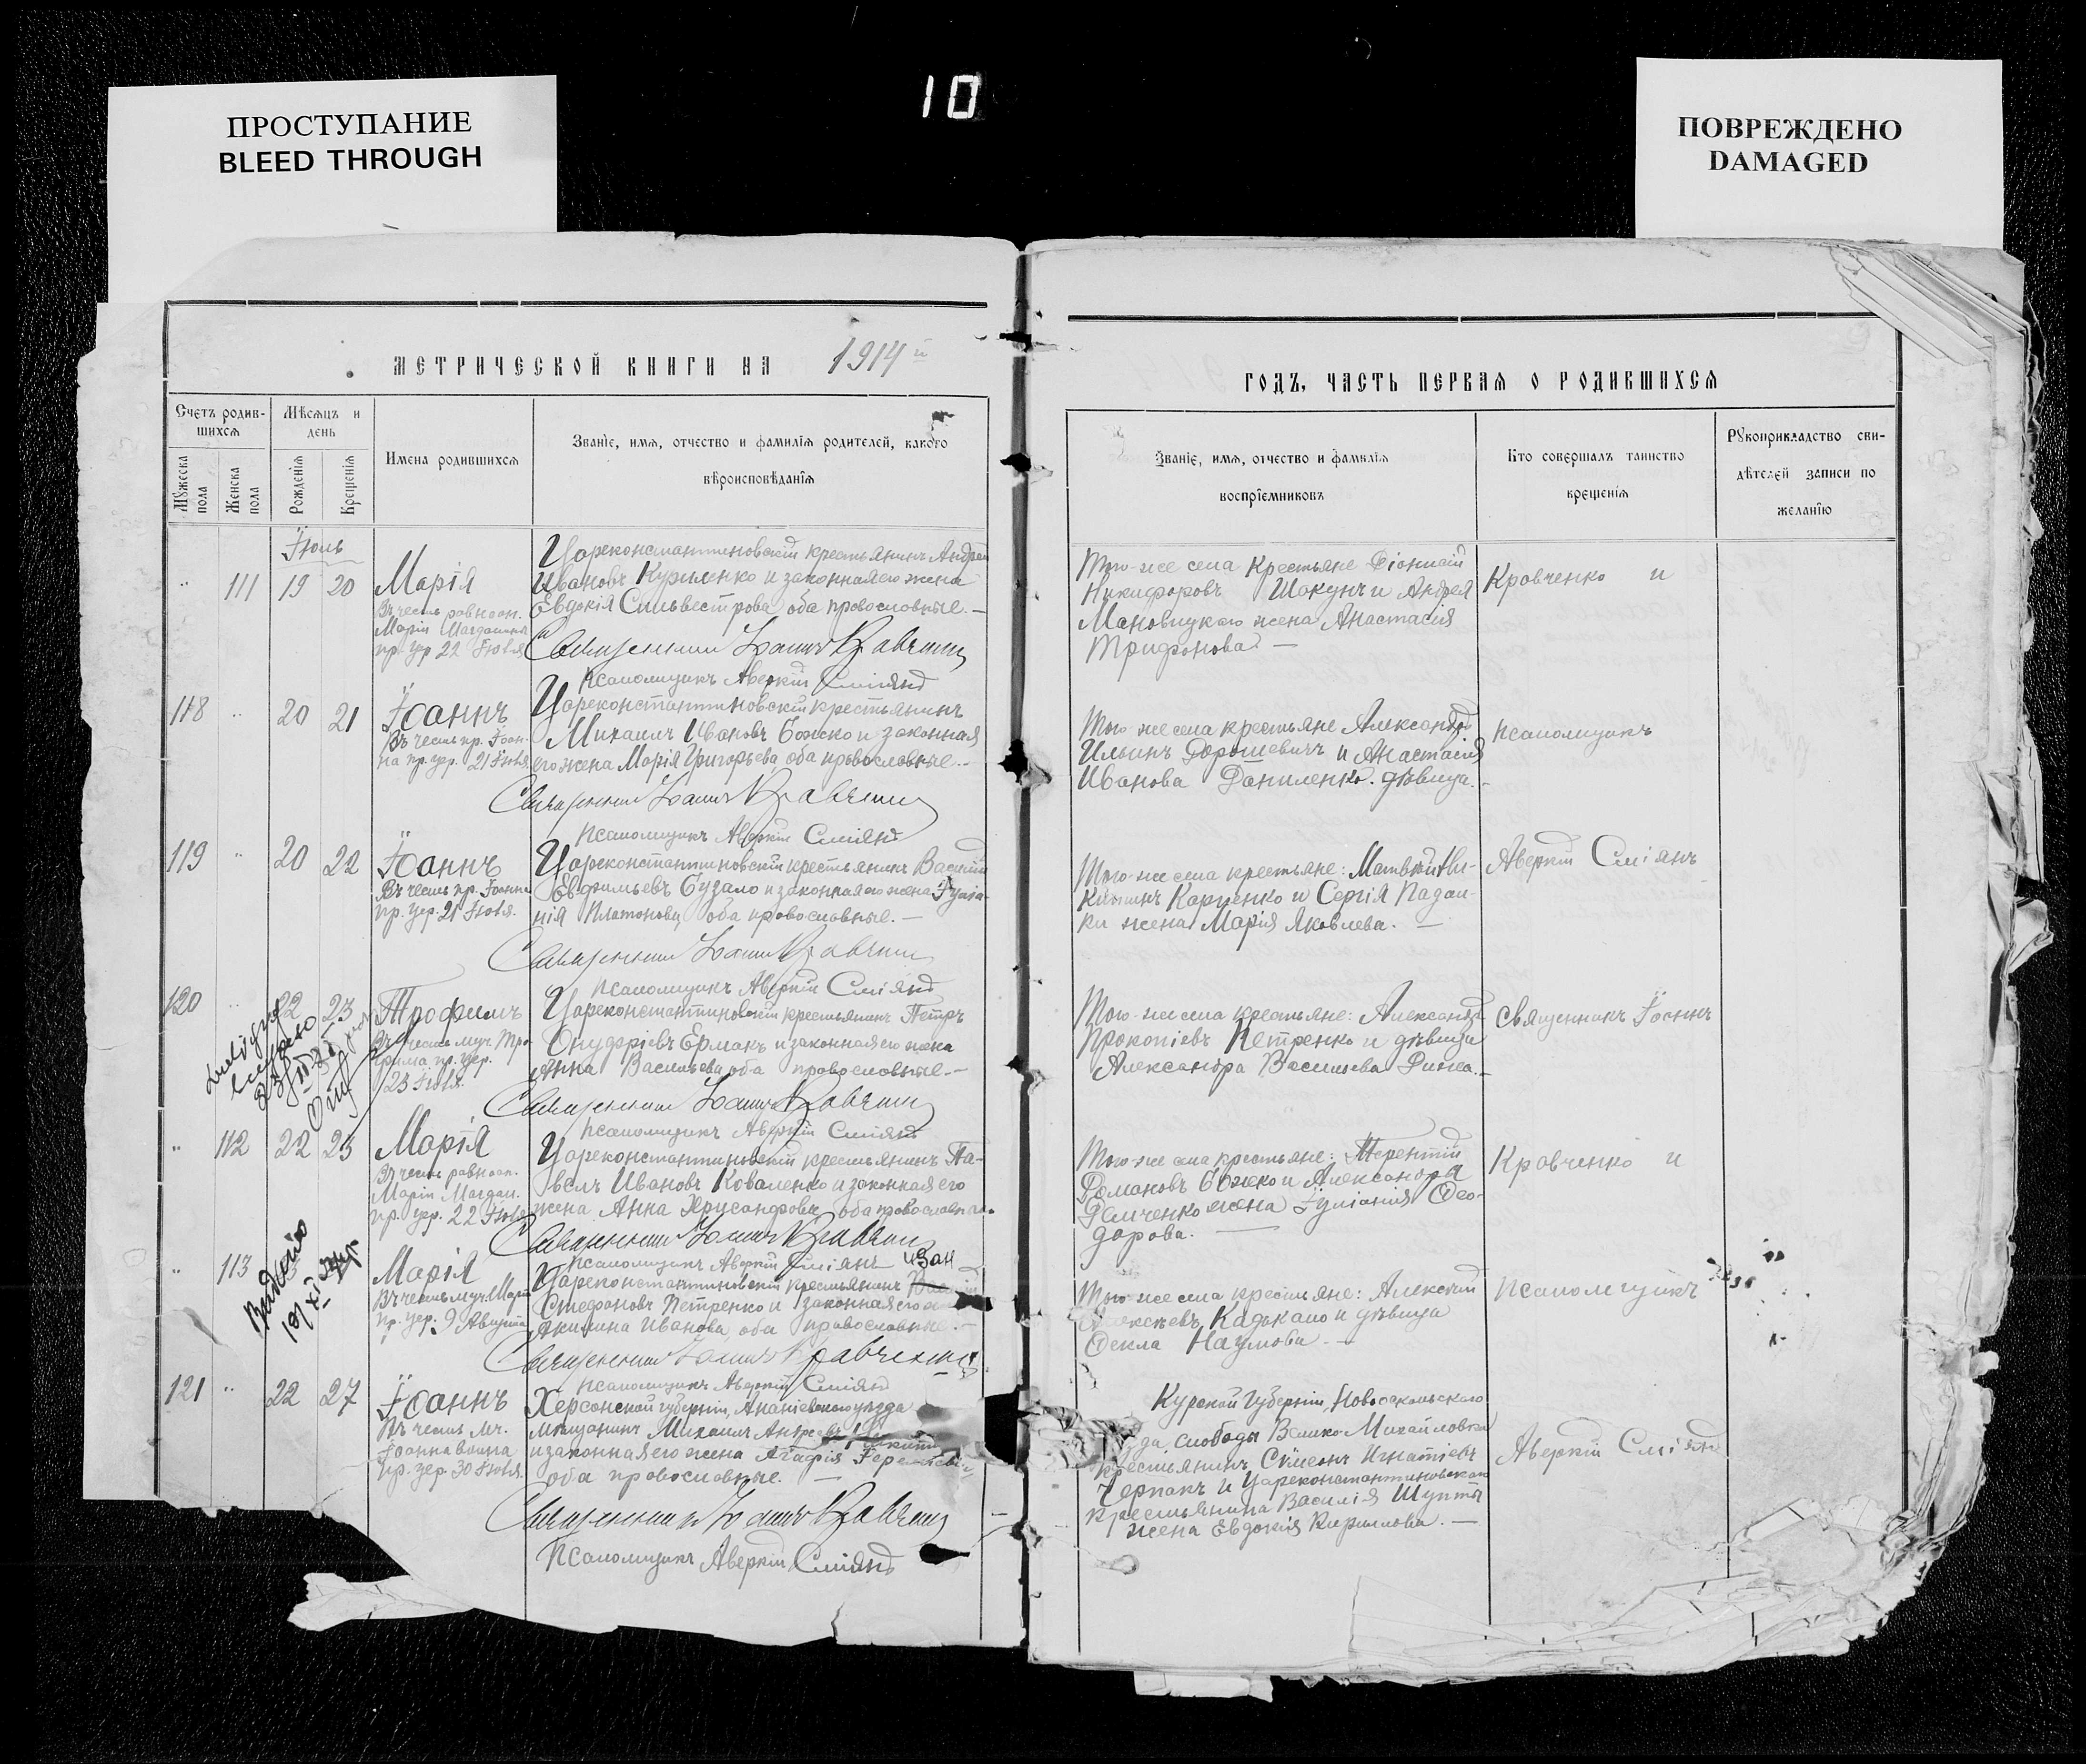 ПРОСТУПАНИЕ
BLEED THROUGH
10
ПОВРЕЖДЕНО
DAMAGED
МЕТРИЧЕСКОЙ КНИГИ НА 1914 й
Счетъ родив-
шихся
Мужеска пола
Женска пола
Мѣсяцъ и
день
Рожденія
Крещенія
Имена родившихся
Званіе, имя, отчество и фамилія родителей, какого
вѣроисповѣданія
Іюль
111 19 20
Марія
Въ честь равноап.
Маріи Магдалины
пр. цер. 22 Іюля
Цареконстантиновскій крестьянинъ Андрей
Ивановъ Куриленко и законная его жена
Евдокія Сильвестрова оба православные. —
Священникъ Іоаннъ Кравченко
Псаломщикъ Аверкій Сміянъ
118 " 20 21
Іоаннъ
Въ честь пр. Іоан-
на пр. цер. 21 Іюля
Цареконстантиновскій крестьянинъ
Михаилъ Ивановъ Божко и законная
его жена Марія Григорьева, оба православные. —
Священникъ Іоаннъ Кравченко
Псаломщикъ Аверкій Сміянъ
119 " 20 22
Іоаннъ
Въ честь пр. Іоанна
пр. цер. 21 Іюля.
Цареконстантиновскій крестьянинъ Василій
Евфимьевъ Бузало и законная его жена Іуліа-
нія Платонова, оба православные. —
Священникъ Іоаннъ Кравченко
Псаломщикъ Аверкій Сміянъ
120 " 22 23
Трофимъ
Въ честь муч. Тро-
фима пр. цер.
23 Іюля.
Цареконстантиновскій крестьянинъ Петръ
Онуфріевъ Ермакъ и законная его жена
Анна Васильева оба православные. —
Священникъ Іоаннъ Кравченко
Псаломщикъ Аверкій Сміянъ
" 112 22 23
Марія
Въ честь равноап.
Маріи Магдал.
пр. цер. 22 Іюля
Цареконстантиновскій крестьянинъ Па-
велъ Ивановъ Коваленко и законная его
жена Анна Хрисанфова, оба православные.
Священникъ Іоаннъ Кравченко
Псаломщикъ Аверкій Сміянъ
" 113
Марія
Въ честь муч. Маріи
пр. цер. 9 Августа
Цареконстантиновскій крестьянинъ
Стефановъ Петренко и законная его
Акилина Иванова, оба православные. —
Священникъ Іоаннъ Кравченко
Псаломщикъ Аверкій Сміянъ
121 " 22 27
Іоаннъ
Въ честь
Іоанна воина
пр. цер. 30 Іюля.
Херсонской губерніи, Ананіевского уѣзда
мѣщанинъ Михаилъ Андреевъ
и законная его жена Агафія
оба православные. —
Священникъ Іоаннъ Кравченко
Псаломщикъ Аверкій Сміянъ
ГОДЪ, ЧАСТЬ ПЕРВАЯ О РОДИВШИХСЯ
Званіе, имя, отчество и фамилія
воспріемниковъ
Кто совершалъ таинство
крещенія
Рукоприкладство сви-
дѣтелей записи по
желанію
Того-же села Крестьяне Діонисій
Никифоровъ Шакунъ и Андрея
Мановицкого жена Анастасія
Трифонова —
Кровченко и
Того-же села крестьяне Александръ
Ильинъ Дорошевичъ и Анастасія
Иванова Даниленко, дѣвица. —
псаломщикъ
Того-же села крестьяне: Матвѣй
Карпенко и Сергія Падал-
ки жена Марія Яковлева. —
Аверкій Сміянъ
Того-же села крестьяне: Александръ
Прокопіевъ Петренко и дѣвица
Александра Васильева —
Священникъ Іоаннъ
Того-же села крестьяне: Терентій
Романовъ Божко и Александра
Демченко жена Іуліанія Ѳео-
дорова. —
Кровченко и
Того-же села крестьяне: Алексѣй
Алексѣевъ, Кадькало и дѣвица
Ѳекла Наумова —
псаломщикъ
Курской Губерніи, Новооскольского
уѣзда, слободы Велико-Михайловки
крестьянинъ Симеонъ Игнатіевъ
Черпакъ и Цареконстантиновскаго
крестьянина Василія Шупты
жена Евдокія Кириллова. —
Аверкій Сміянъ